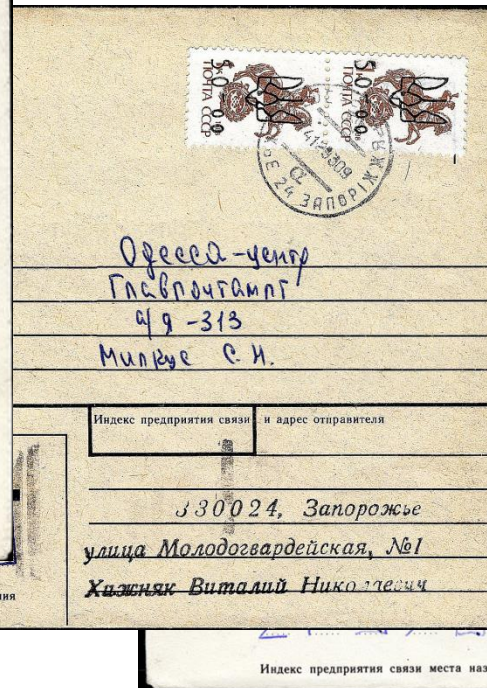 50-00
ПОЧТА СССР
50-00
ПОЧТА СССР
24 ЗАПОРІЖЖЯ
Одесса-центр
Главпочтампт
а/я-313
Милкус С.Н.
Индекс предприятия связи и адрес отправителя
330024, Запорожье
улица Молодогвардейская, №1
Хижняк Виталий Николаевич
Индекс предприятия связи места наз